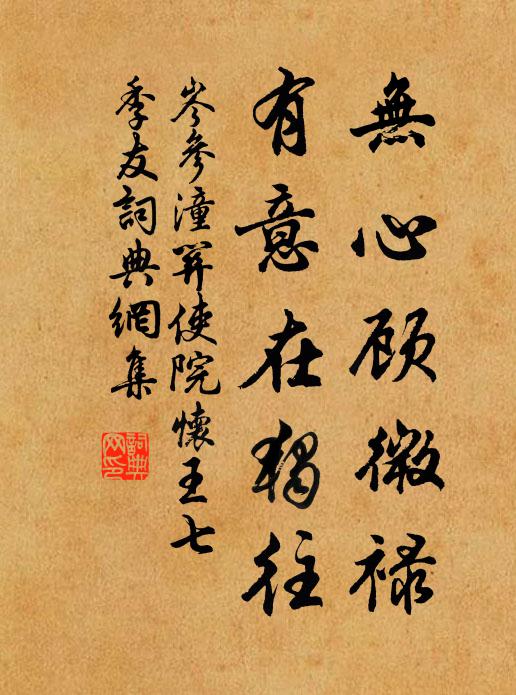 無心顾微禄
有意在独往
岑參潼関使院懷王七
季友詞典網集
詞典网印